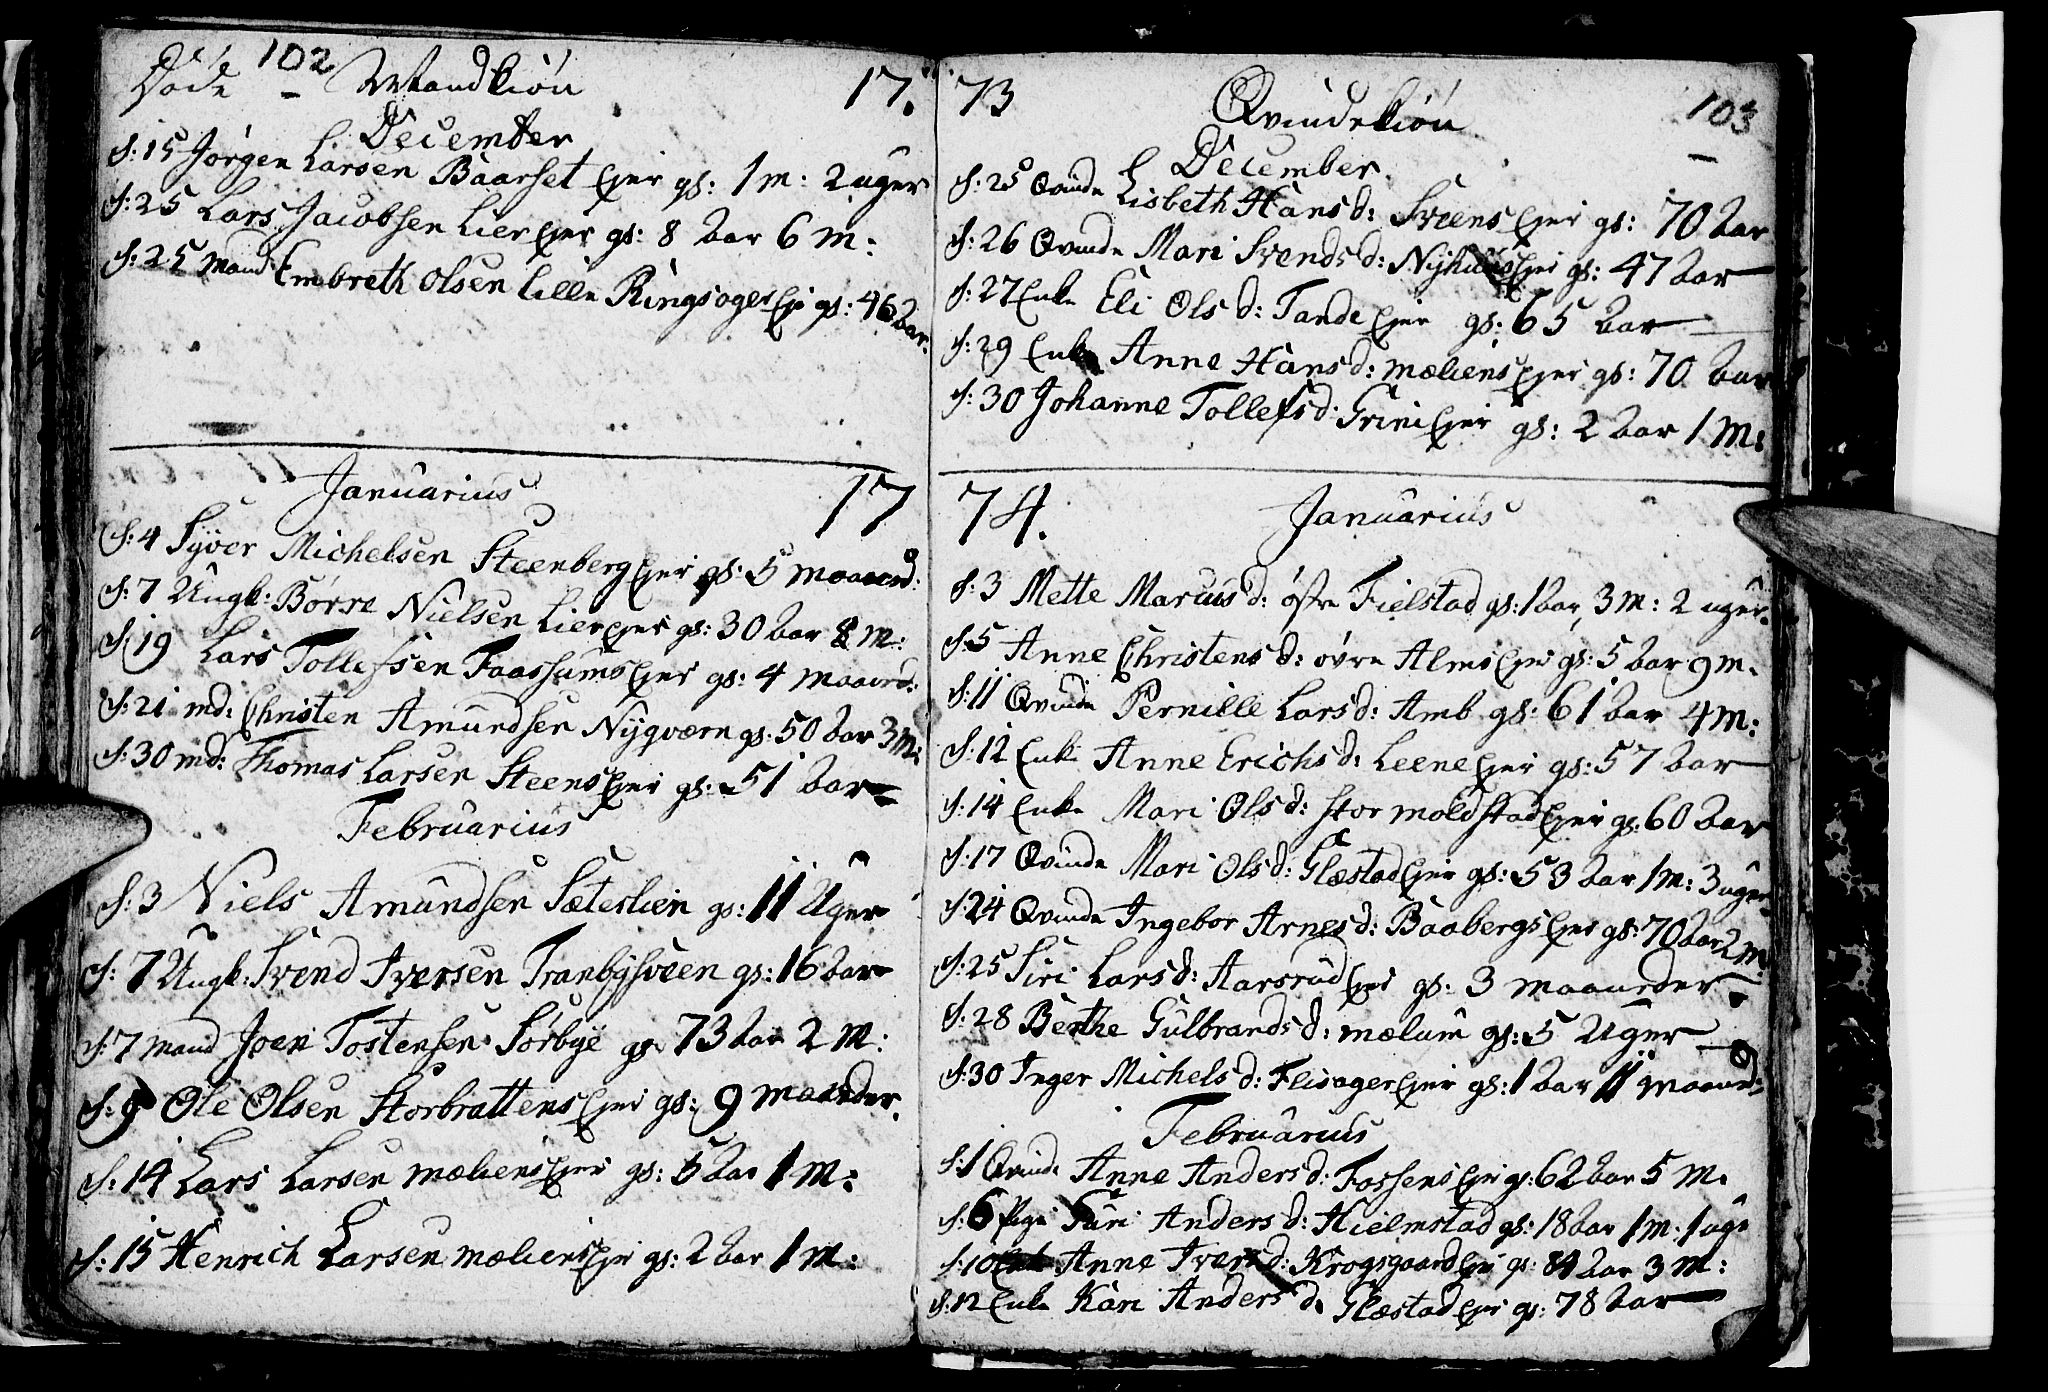 Døde 102 – Mandkiön 17.
December
d: 15 Jörgen Larsen Baarset Ejer gl: 1 m: 2 uger
d: 25 Lars Jacobsen Lier Ejer gl: 8 Aar 6 m:
d: 25 Mand Embreth Olsen Lille Ringsager Eje gl: 46 Aar.
Januarius 17
d: 4 Syver Michelsen Steenberg Ejer gl: 5 maaned:
d: 7 Ungk: Börre Nielsen Lier Ejer gl: 30 Aar 8 m:
d: 19 Lars Tollefsen Faassums Ejer gl: 4 maaned:
d: 21 md: Christen Amundsen Nygvern gl: 50 Aar 3 m:
d: 30 md: Thomas Larsen Steens Ejer gl: 51 Aar
Februarius
d: 3 Niels Amundsen Sæterlien gl: 11 Uger
d: 7 Ungk: Svend Iversen Tranbysveen gl: 16 Aar
d: 7 Mand Joen Tostensen Sörbye gl: 73 Aar 2 M:
d: 9 Ole Olsen Storbrattens Ejer gl: 9 Maaneder.
d: 14 Lars Larsen mæliens Ejer gl: 5 Aar 1 M:
d: 15 Henrich Larsen mæliens Eje gl: 2 Aar 1 M:
73 Qvindekiön 103
December.
d: 25 Qvinde Lisbeth Hansd: Sveens Ejer gl: 70 Aar
d: 26 Qvinde Mari Svendsd: Nyhuus Ejer gl: 47 Aar
d: 27 Enke Eli Olsd: Tande Ejer gl: 65 Aar
d: 29 Enke Anne Hansd: mæliens Ejer gl: 70 Aar
d: 30 Johanne Tollefsd: Grini Ejer gl: 2 Aar 1 M:
74. Januarius
d: 3 Mette Marcusd: östre Fielstad gl: 1 Aar, 3 M: 2 uger.
d: 5 Anne Christensd: övre Alms Ejer gl: 5 Aar 9 m.
d: 11 Qvinde Pernille Larsd: Amb gl: 61 Aar 4 m:
d: 12 Enke Anne Erichsd: Leene Ejer gl: 57 Aar
d: 14 Enke Mari Olsd: stor moldstad Ejer gl: 60 Aar
d: 17 Qvinde Mari Olsd: Glæstad Ejer gl: 53 Aar 1 M: 3 uger.
d: 24 Qvinde Ingebor Arnesd: Baabergs Ejer gl: 70 Aar 2 M.
d: 25 Siri Larsd: Aarsrud Ejer gl: 3 maaneder
d: 28 Berthe Gulbrandsd: mælum gl: 5 Uger
d: 30 Inger Michelsd: Flisager Ejer gl: 1 Aar 11 maaned:
Februarius
d: 1 Qvinde Anne Andersd: Fossens Eje gl: 62 Aar 5 M.
d: 6 Pige Guri Andersd: Hielmstad gl: 18 Aar 1 M: 1 uge
d: 10 Enke Anne Iversd: Krogsgaard Eje gl: 84 Aar 3 M:
d: 12 Enke Kari Andersd. Glæstad Eje gl: 78 Aar